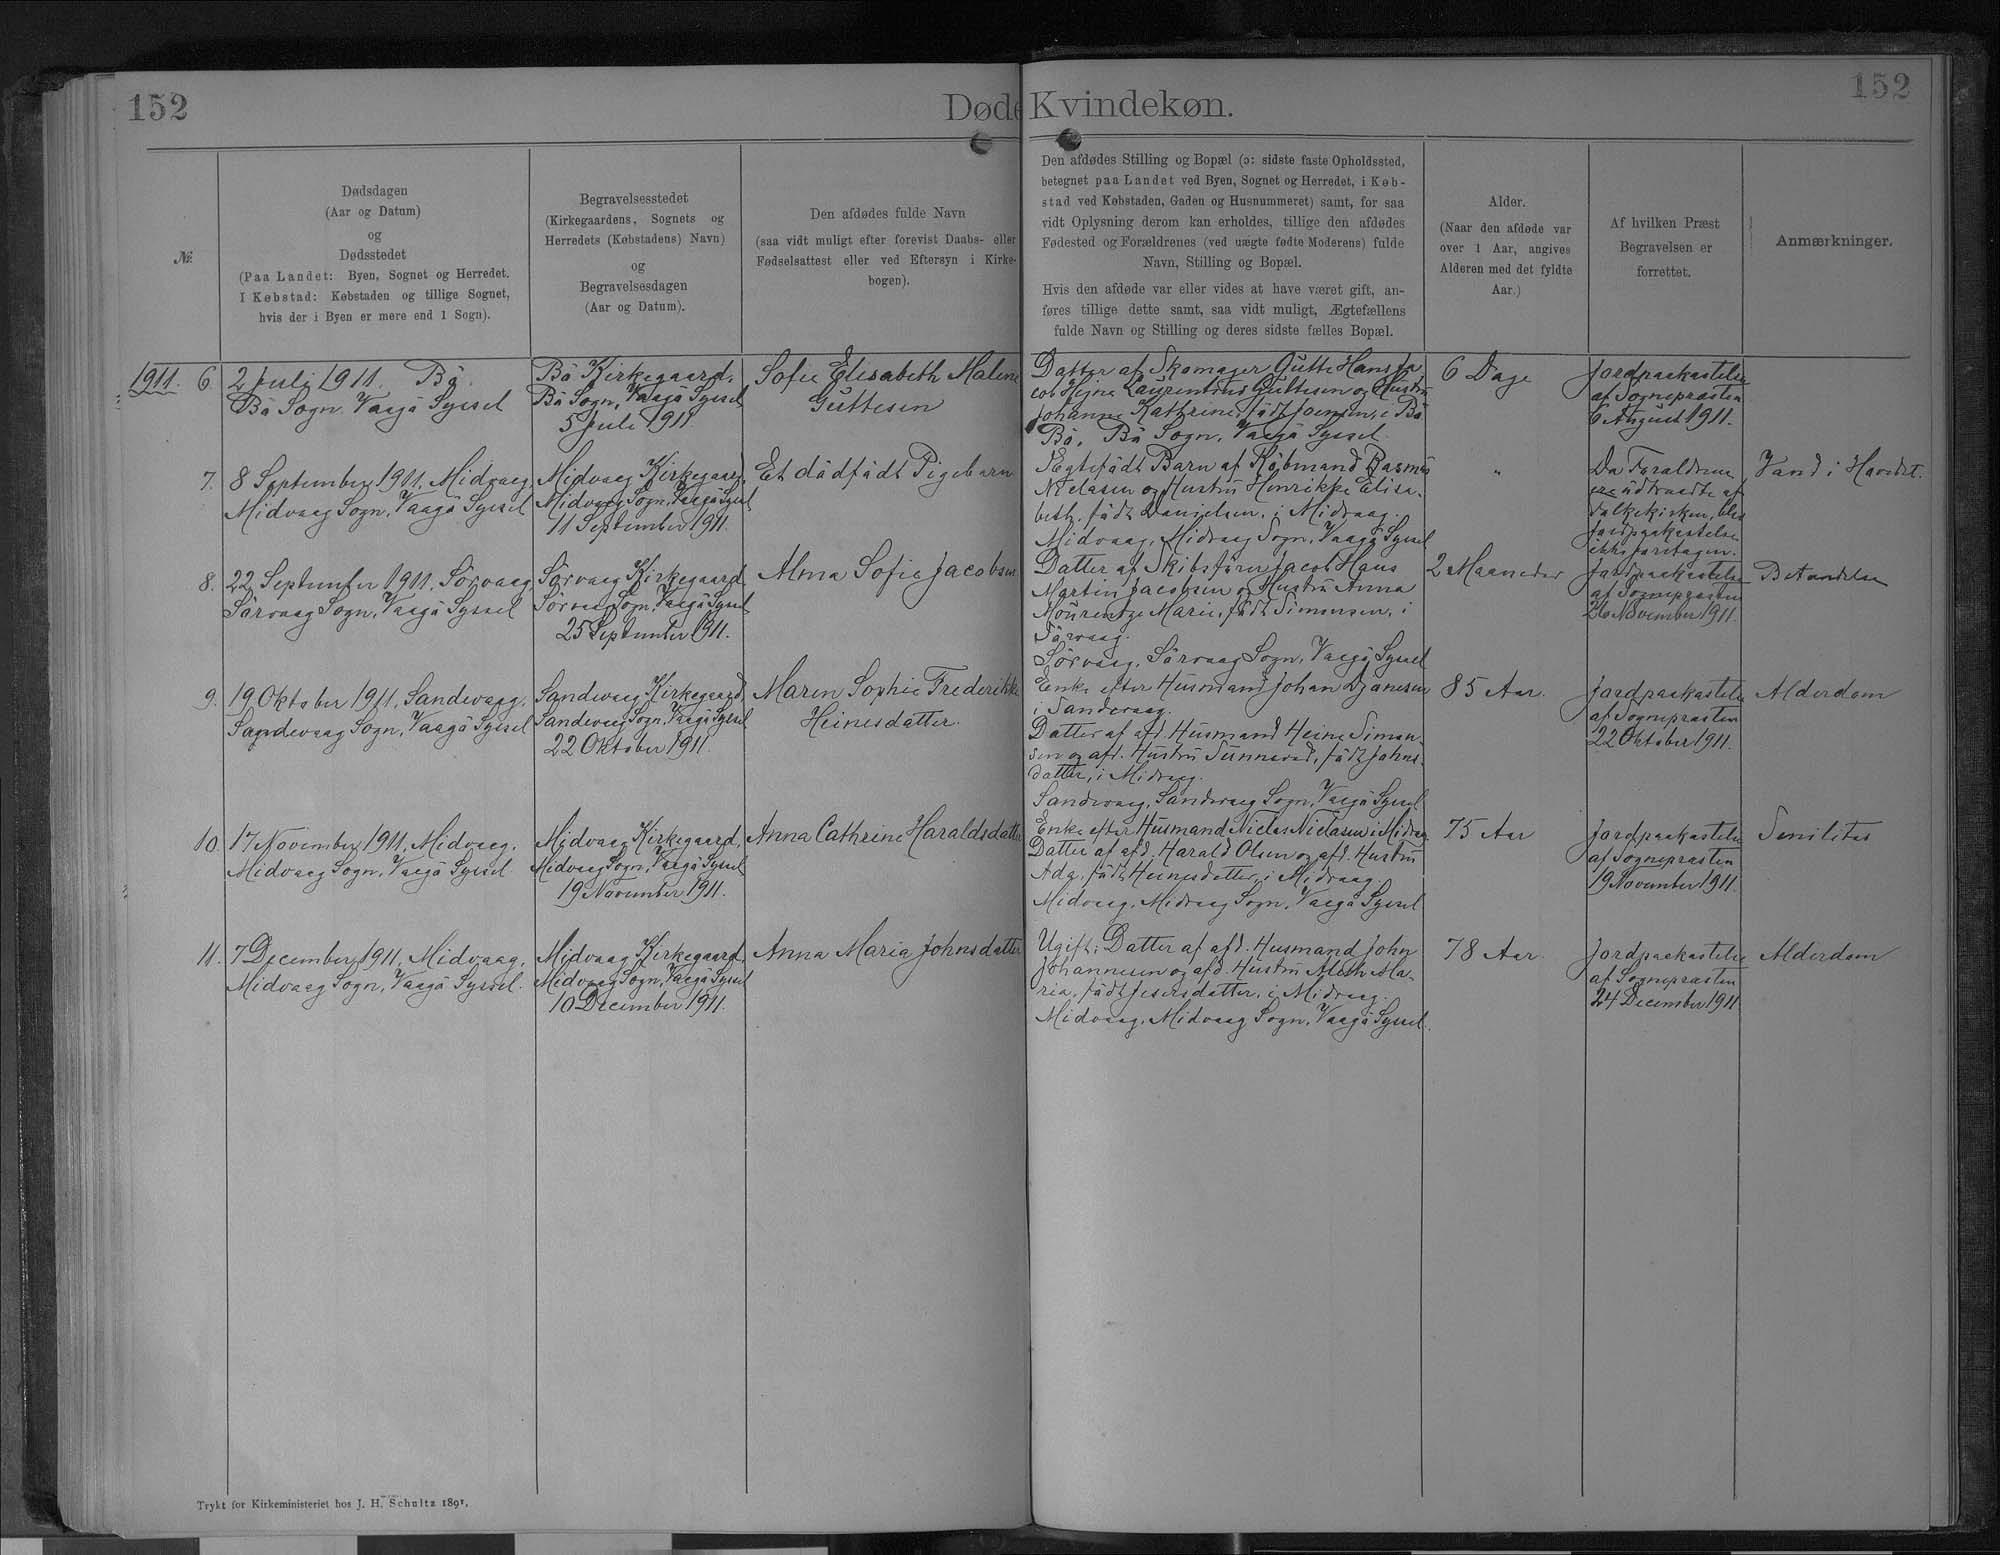 152
Døde Kvindekøn.
152
№
Dødsdagen
(Aar og Datum)
og
Dødsstedet
(Paa Landet: Byen, Sognet og Herredet.
I Købstad: Købstaden og tillige Sognet,
hvis der i Byen er mere end 1 Sogn).
Begravelsesstedet
(Kirkegaardens, Sognets og
Herredets (Købstadens) Navn)
og
Begravelsesdagen
(Aar og Datum).
Den afdødes fulde Navn
(saa vidt muligt efter forevist Daabs- eller
Fødselsattest eller ved Eftersyn i Kirke-
bogen).
Den afdødes Stilling og Bopæl (ɔ: sidste faste Opholdssted,
betegnet paa Landet ved Byen, Sognet og Herredet, i Køb-
stad ved Købstaden, Gaden og Husnummeret) samt, for saa
vidt Oplysning derom kan erholdes, tillige den afdødes
Fødested og Forældrenes (ved uægte fødte Moderens) fulde
Navn, Stilling og Bopæl.
Hvis den afdøde var eller vides at have været gift, an-
føres tillige dette samt, saa vidt muligt, Ægtefællens
fulde Navn og Stilling og deres sidste fælles Bopæl.
Alder.
(Naar den afdøde var
over 1 Aar, angives
Alderen med det fyldte
Aar.)
Af hvilken Præst
Begravelsen er
forrettet.
Anmærkninger.
1911. 6.
2 Juli 1911. Bö.
Bö Sogn. Vaagö Syssel
Bö Kirkegaard.
Bö Sogn, Vaagö Syssel
5 Juli 1911.
Sofie Elisabeth Malene
Guttesen
Datter af Skomager Gutte Hans Ja
cob Hejne Laurentius Guttesen og Hustru
Johanne Kathrine, född Joensen, i Bö
Bö, Bö Sogn, Vaagö Syssel.
6 Dage
Jordpaakastelse
af Sognepræsten
6 August 1911.
7.
8 September 1911. Midvaag
Midvaag Sogn, Vaagö Syssel
Midvaag Kirkegaard,
Midvaag Sogn, Vaagö Syssel
11 September 1911.
Et dödfödt Pigebarn
Ægtefödt Barn af Köbmand Rasmus
Niclasen og Hustru Henrikke Elisa-
beth, född Danielsen, i Midvaag.
Midvaag, Midvaag Sogn, Vaagö Syssel
"
Da Forældrene
ere udtraadte af
Folkekirken, blev
Jordpaakastelse
ikke foretagen.
Vand i Hovedet.
8.
22 September 1911. Sörvaag,
Sörvaag Sogn, Vaagö Syssel
Sörvaag Kirkegaard
Sörvaag Sogn, Vaagö Syssel
25 September 1911.
Alma Sofie Jacobsen
Datter af Skibsförer Jacob Hans
Martin Jacobsen og Hustru Anna
Mourentze Marie, född Simonsen, i
Sörvaag.
Sörvaag, Sörvaag Sogn, Vaagö Syssel
2 Maaneder
Jordpaakastelse
af Sognepræsten
26 November 1911.
Betændelse
9.
19 Oktober 1911, Sandevaag,
Sandevaag Sogn, Vaagö Syssel
Sandevaag Kirkegaard,
Sandevaag Sogn, Vaagö Syssel
22 Oktober 1911.
Maren Sophie Frederikke
Heinesdatter.
Enke efter Husmand Johan Djonesen
i Sandevaag.
Datter af afd. Husmand Heine Simon-
sen og afd. Hustru Sunneva, född Johns-
datter, i Midvaag.
Sandevaag, Sandevaag Sogn, Vaagö Syssel
85 Aar.
Jordpaakastelse
af Sognepræsten
22 Oktober 1911.
Alderdom
10.
17 November 1911, Midvaag,
Midvaag Sogn, Vaagö Syssel
Midvaag Kirkegaard,
Midvaag Sogn, Vaagö Syssel
19 November 1911.
Anna Cathrine Haraldsdatter
Enke efter Husmand Niclas Niclasen i Midvaag
Datter af afd. Harald Olsen og afd. Hustru
Ada, född Heinesdatter, i Midvaag.
Midvaag, Midvaag Sogn, Vaagö Syssel
75 Aar
Jordpaakastelse
af Sognepræsten
19 November 1911.
Senilitas
11.
7 December 1911, Midvaag,
Midvaag Sogn, Vaagö Syssel.
Midvaag Kirkegaard,
Midvaag Sogn, Vaagö Syssel
10 December 1911.
Anna Maria Johnsdatter
Ugift; Datter af afd. Husmand John
Johannesen og afd. Hustru Ma-
ria, född i Midvaag.
Midvaag, Midvaag Sogn, Vaagö Syssel.
78 Aar.
Jordpaakastelse
af Sognepræsten
24 December 1911
Alderdom
Trykt for Kirkeministeriet hos J. H. Schultz 1891.